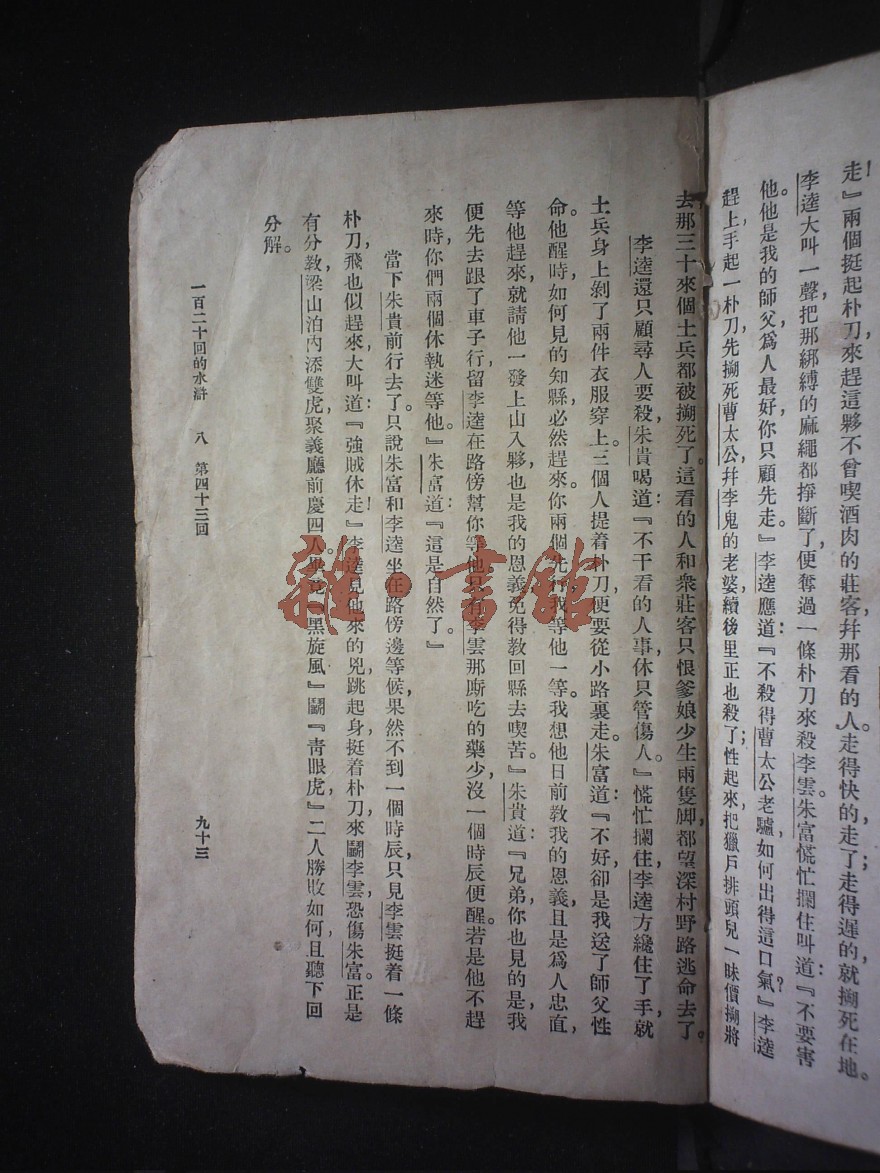 走！』兩個挺起朴刀來趕這夥不曾喫酒肉的莊客幷那看的人走得快的走了；走得遲的，就搠死在地。
李逵大叫一聲，把那綁縛的麻繩都掙斷了，便奪過一條朴刀來殺李雲。朱富慌忙攔住叫道：『不要害
他。他是我的師父，爲人最好，你只顧先走。』李逵應道：『不殺得曹太公老驢，如何出得這口氣？』李逵
趕上，手起一朴刀，先搠死曹太公幷李鬼的老婆，續後里正也殺了；性起來，把獵戶排頭兒一昧價搠將
去，那三十來個土兵都被搠死了。這看的人和衆莊客只恨爹娘少生兩隻脚，都望深村野路逃命去了。
李逵還只顧尋人要殺，朱貴喝道：『不干看的人事，休只管傷人。』慌忙攔住。李逵方纔住了手，就
士兵身上剝了兩件衣服穿上。三個人提着朴刀，便要從小路裏走。朱富道：『不好，卻是我送了師父性
命。他醒時，如何見的知縣，必然趕來。你兩個先行，我等他一等。我想他日前教我的恩義，且是爲人忠直，
等他趕來，就請他一發上山入夥，也是我的恩義，免得教回縣去喫苦。』朱貴道：『兄弟，你也見的是，我
便先去跟了車子行，留李逵在路傍幫你等他。只有李雲那廝吃的藥少，沒一個時辰便醒。若是他不趕
來時，你們兩個休執迷等他。』朱富道：『這是自然了。』
當下朱貴前行去了。只說朱富和李逵坐在路傍邊等候，果然不到一個時辰，只見李雲挺着一條
朴刀，飛也似趕來，大叫道：『強賊休走！』李逵見他來的兇，跳起身，挺着朴刀來鬭李雲，恐傷朱富。正是
有分教梁山泊內添雙虎，聚義廳前慶四人。畢竟『黑旋風』鬭『靑眼虎』，二人勝敗如何，且聽下回
分解。
一百二十回的水滸 八 第四十三回 九十三
雜·書館